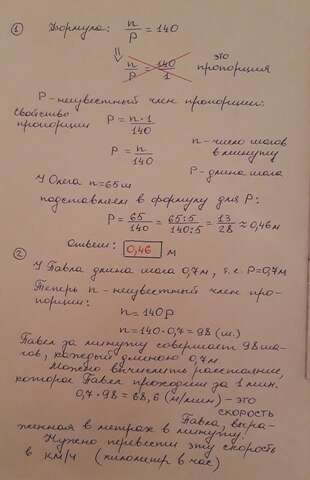 ① Формула: n/P = 140
⇓
n/P = 140/1 это пропорция
P - неизвестный член пропорции:
Свойство пропорции P = n·1/140
P = n/140 n - число шагов в минуту
P - длина шага
У Олега n = 65 ш
подставляем в формулу для P:
P = 65/140 = 65:5/140:5 = 13/28 ≈ 0,46м
Ответ: 0,46 м
② У Павла длина шага 0,7м, т.е. P=0,7м
Теперь n - неизвестный член про-
порции:
n = 140P
n = 140·0,7 = 98 (ш.)
Павел за минутку совершает 98 ша-
гов, каждый длиною 0,7м.
Можно вычислить расстояние,
которое Павел проходит за 1 мин.
0,7·98 = 68,6 (м/мин) - это
скорость
Павла, выра-
женная в метрах в минуту.
Нужно перевести эту скорость
в км/ч (километр в час)